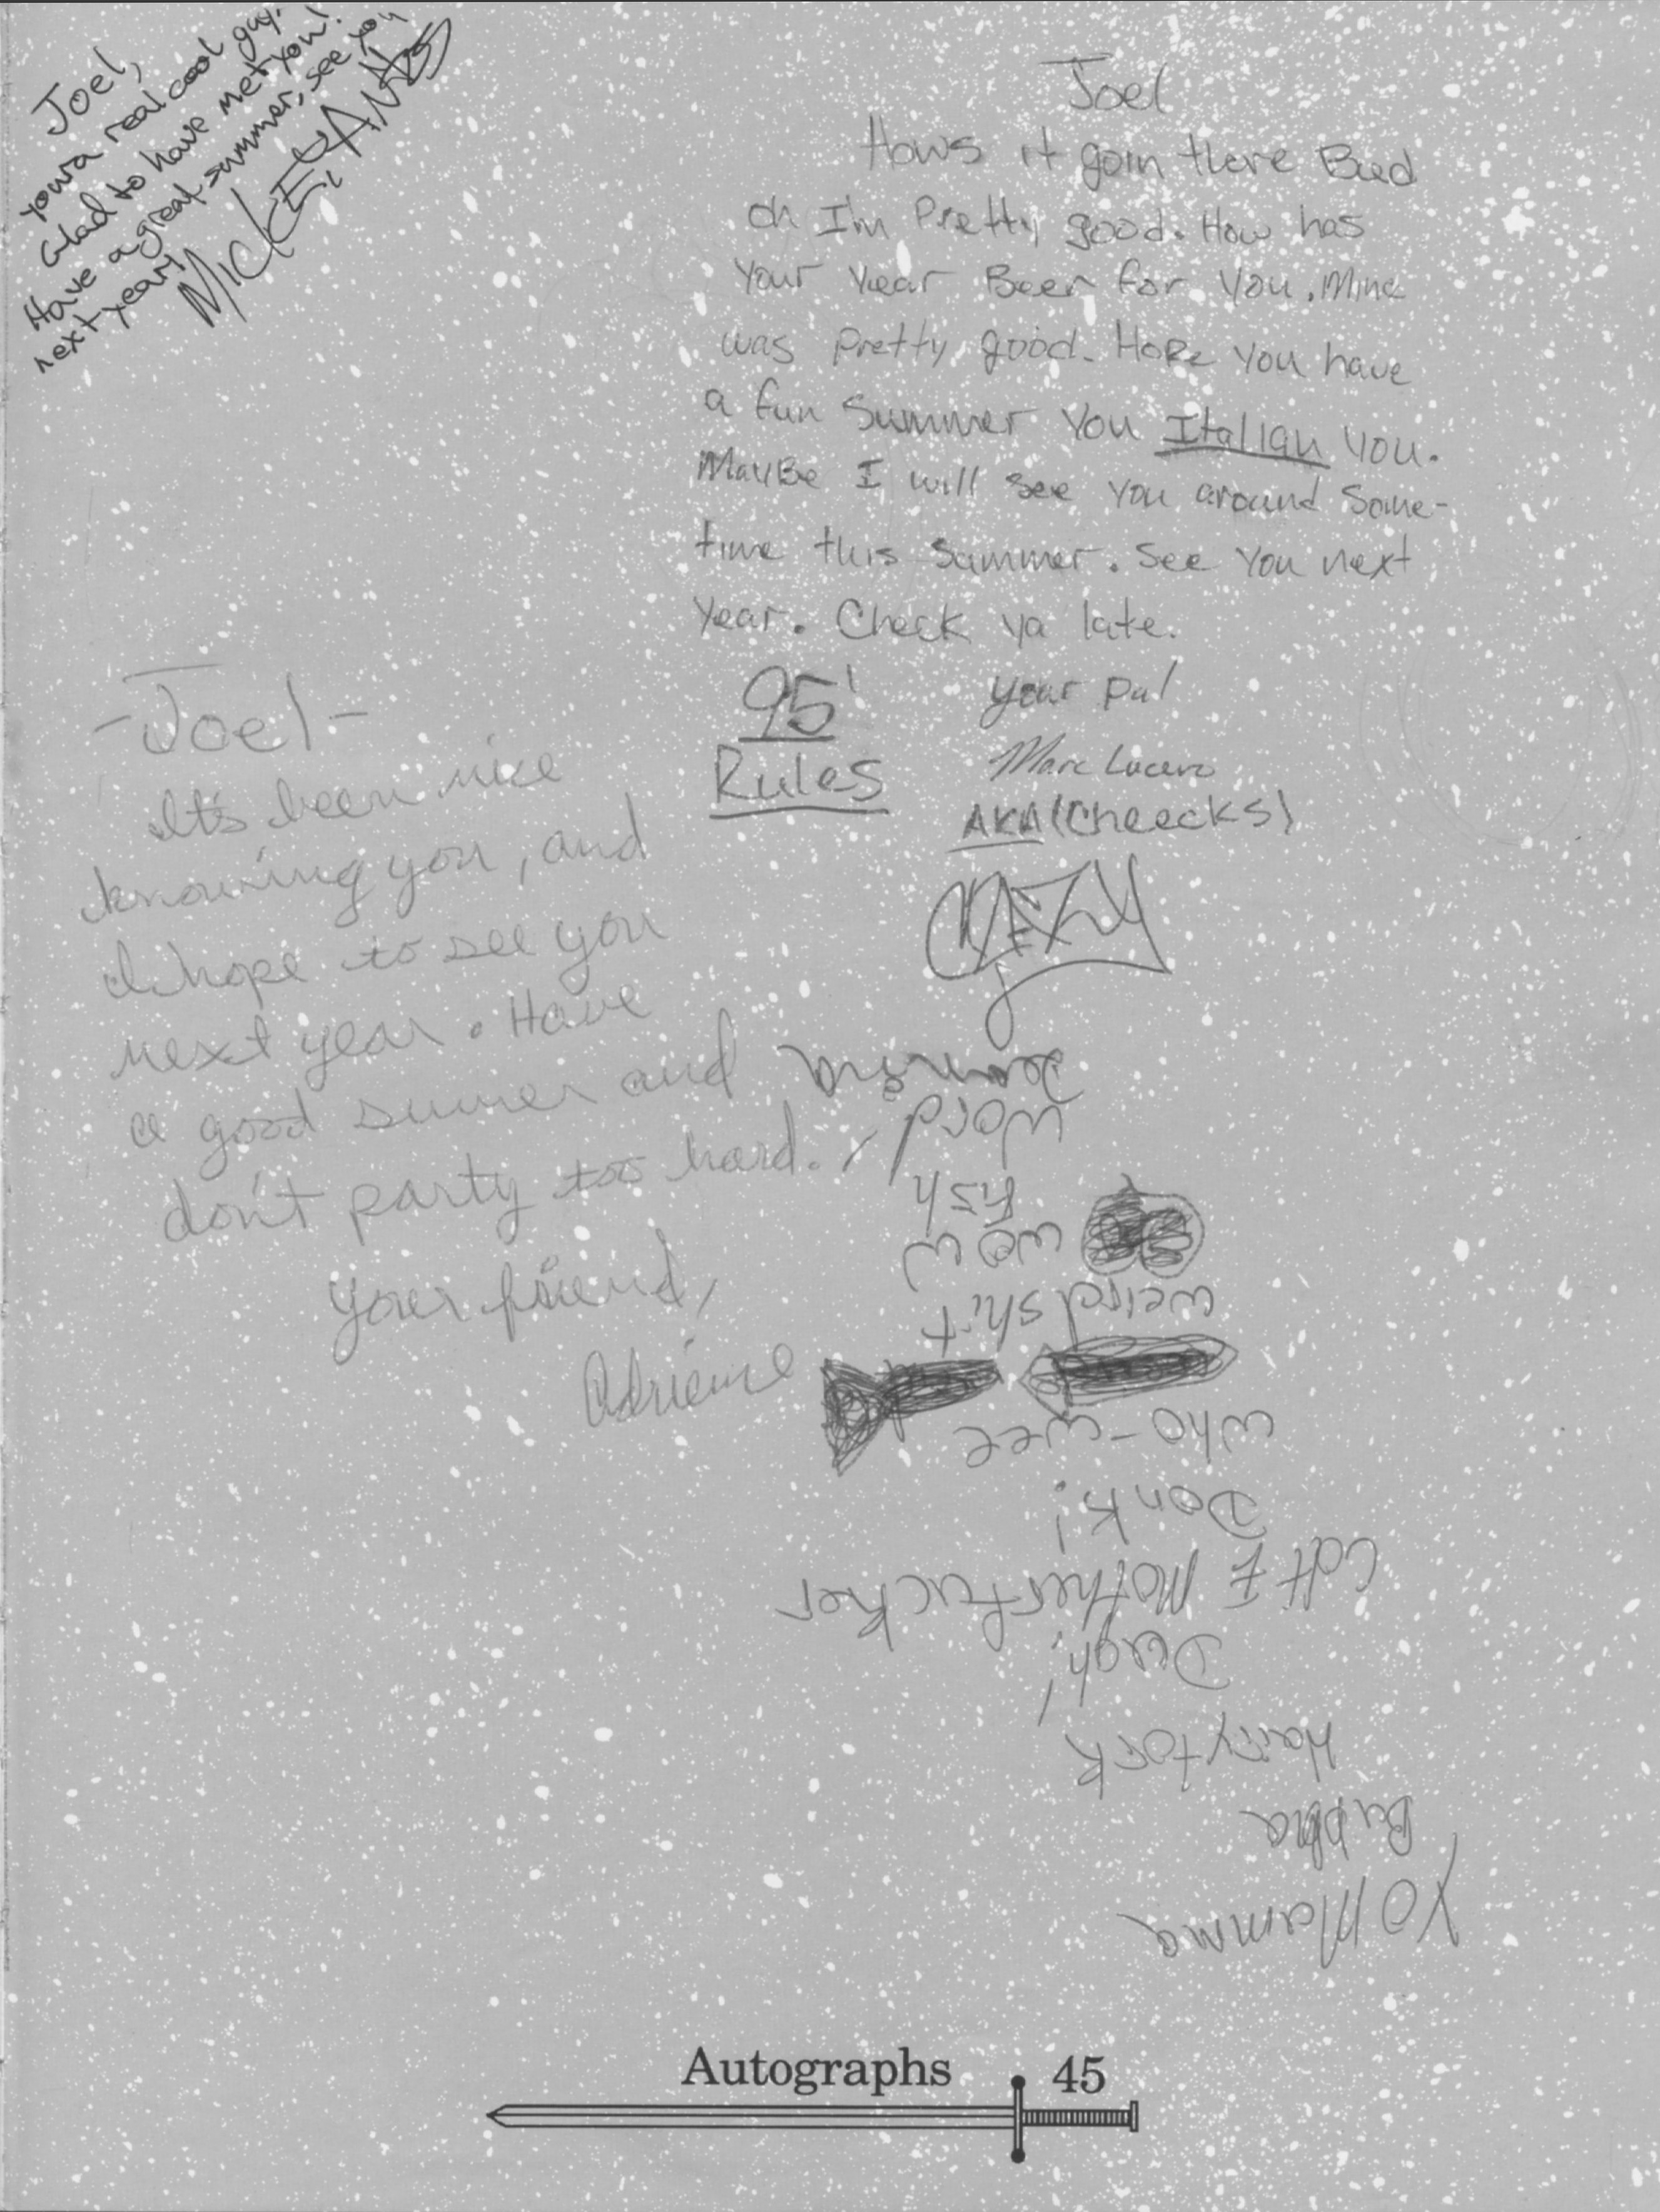 Joel,
your a real cool guy.
Glad to have met you!
Have a great summer, see you
next year!
Joel
Hows it goin there Bud
oh I'm Pretty good. How has
your year Been for you. Mine
was pretty good. Hope you have
a fun summer you Italian you.
Maybe I will see you around some-
time this summer. See you next
year. Check ya late.
95'
Rules
your pal
Marc Lucero
AKA (Cheecks)
-Joel-
It's been nice
knowing you, and
I hope to see you
next year. Have
a good summer and
don't party too hard.
Your friend,
Adrienne
Yo Mamma
Bubba
Harry tork
Duah!
Cat E Motherfucker
Donk!
who-wee
weird shit
wow
fish
word
Autographs 45